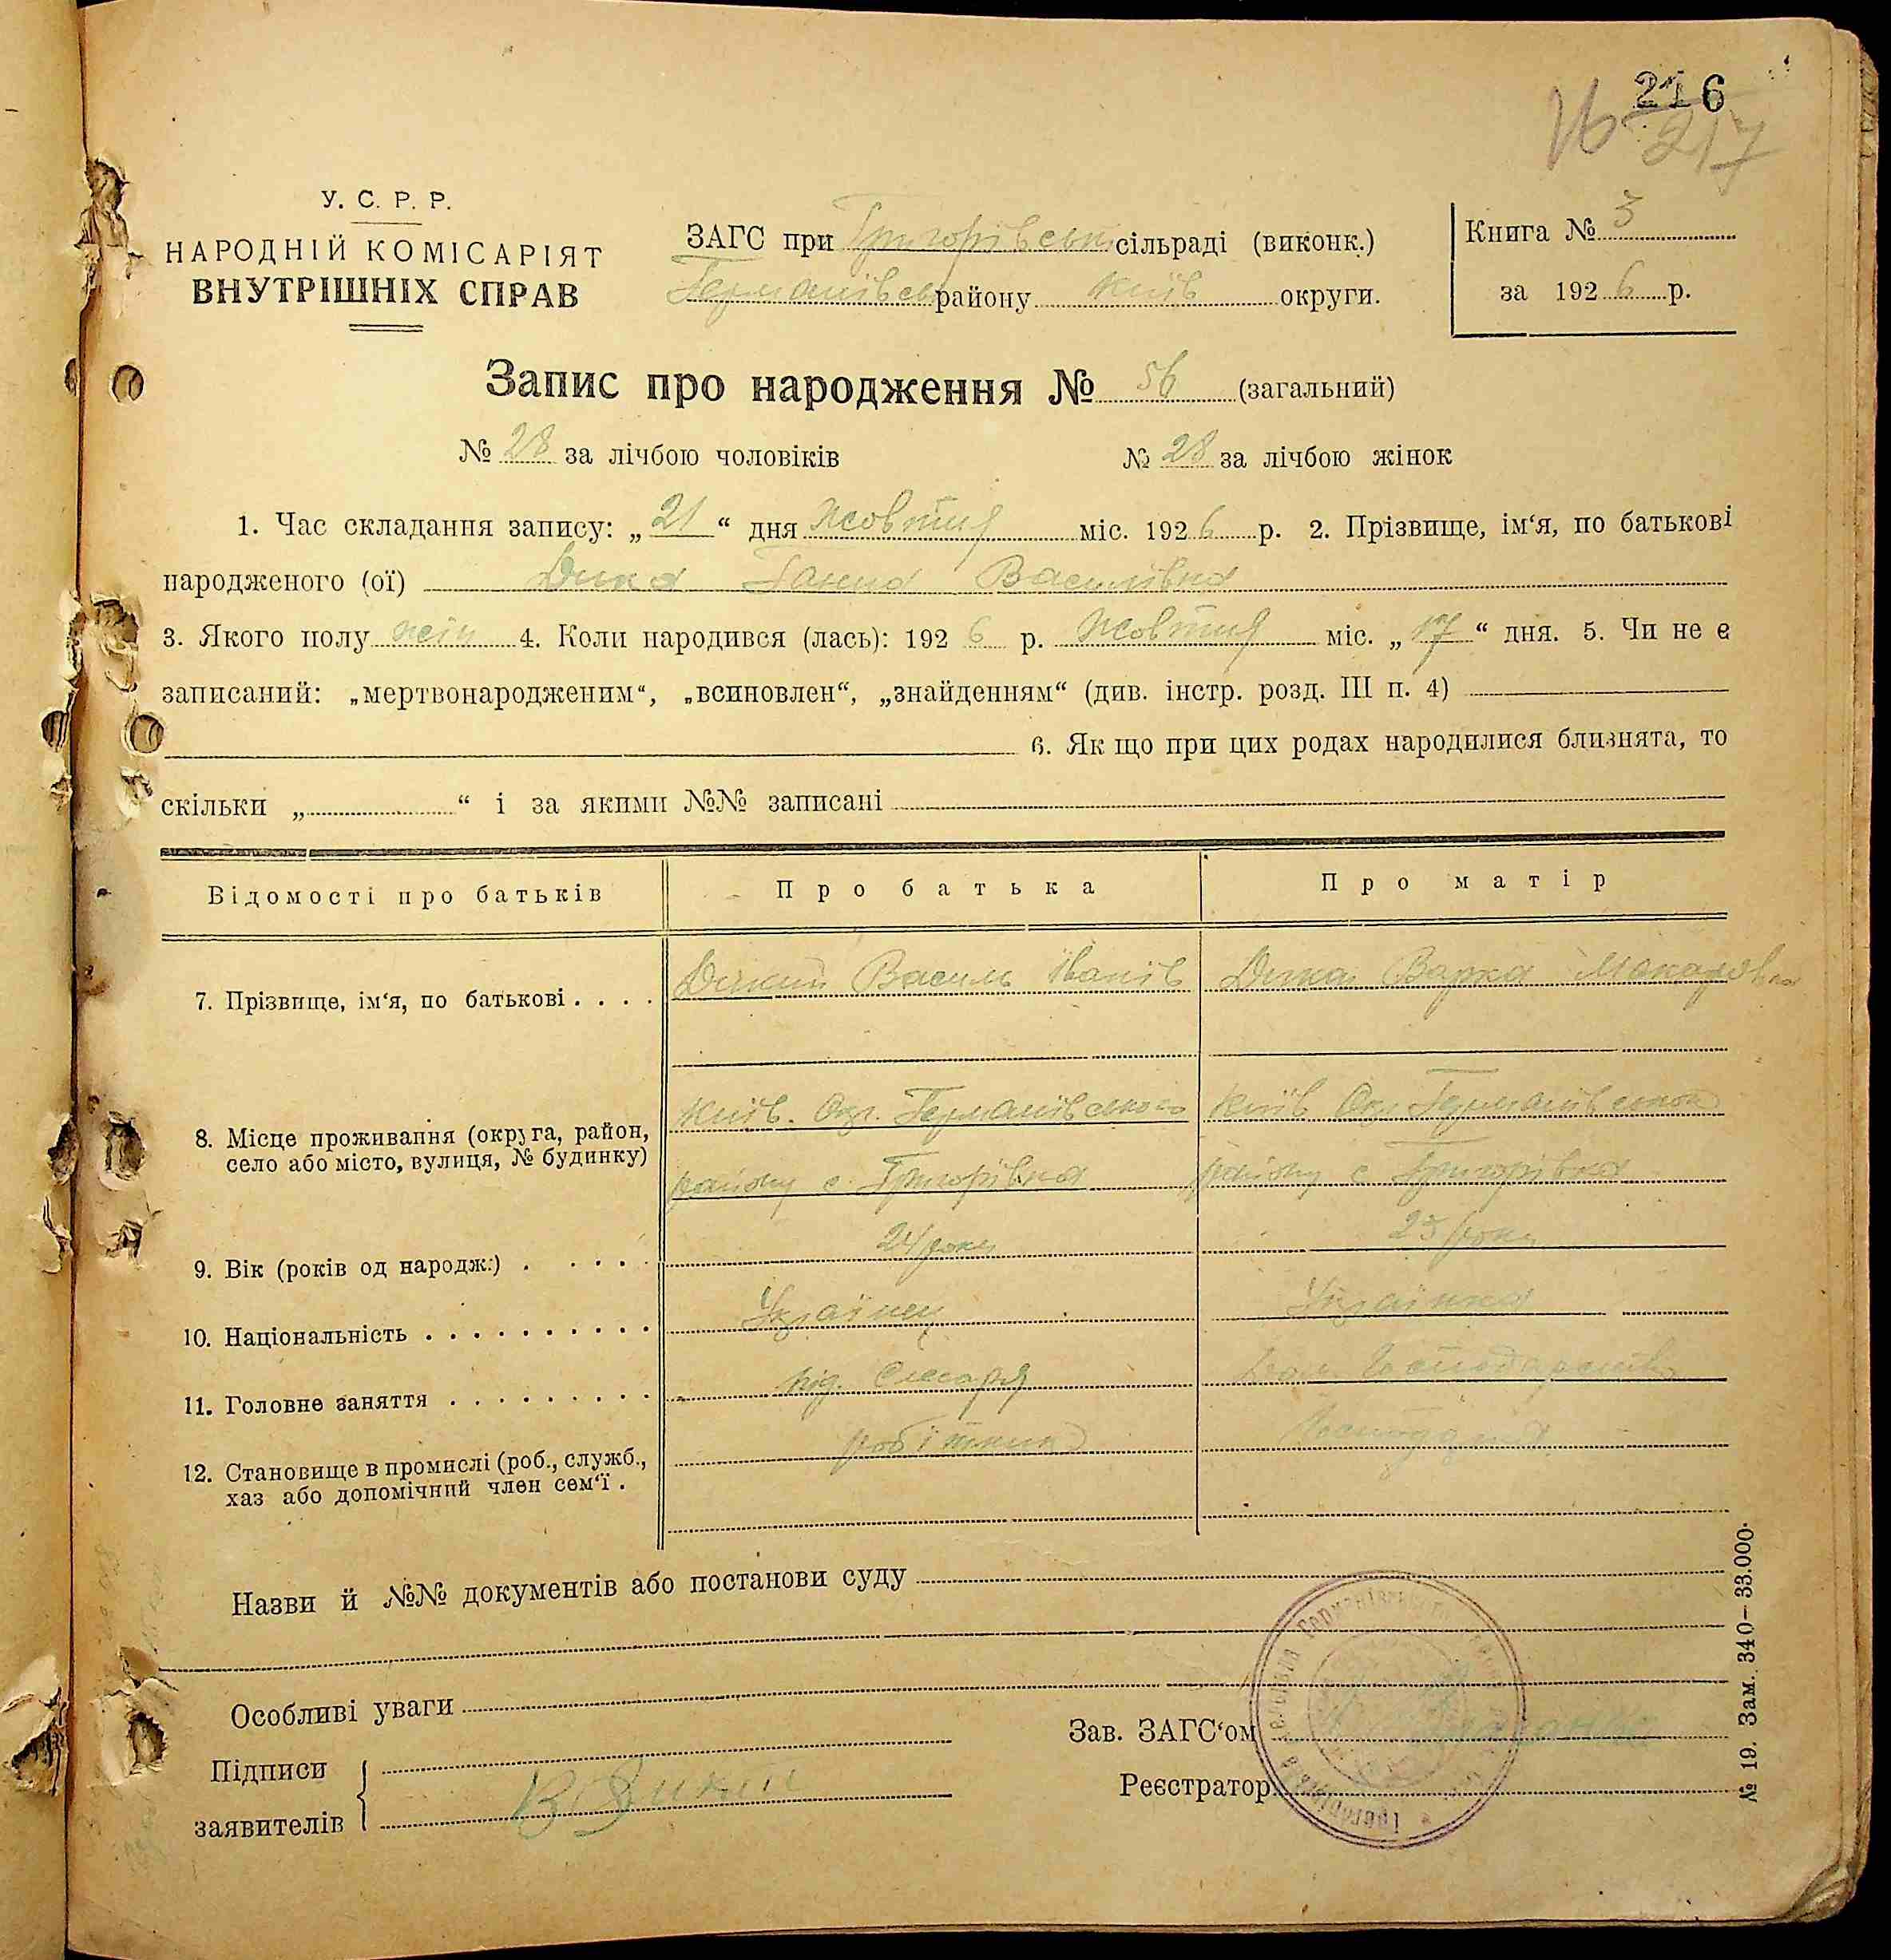 216
16 217
У. С. Р. Р.
НАРОДНІЙ КОМІСАРІЯТ
ВНУТРІШНІХ СПРАВ
ЗАГС при Григорівськ сільраді (виконк.)
Германівськ району Київ округи.
Книга № 3
за 1926 р.
Запис про народження № 56 (загальний)
№ 28 за лічбою чоловіків № 28 за лічбою жінок
1. Час складання запису: „21“ дня Жовтня міс. 1926 р. 2. Прізвище, ім‘я, по батькові
народженого (ої) Дика Ганна Василівна
3. Якого полу жін 4. Коли народився (лась): 1926 р. Жовтня міс. „17“ дня. 5. Чи не є
записаний: „мертвонародженим“, „всиновлен“, „знайденням“ (див. інстр. розд. III п. 4)
6. Як що при цих родах народилися близнята, то
скільки „ “ і за якими №№ записані
Відомості про батьків Про батька Про матір
7. Прізвище, ім‘я, по батькові . . . . Дикий Василь Іванів Дика Варка Макаровна
8. Місце проживання (округа, район, Київ. Окр. Германівського Київ Окр Германівської
село або місто, вулиця, № будинку) району с Григорівка району с Григорівка
9. Вік (років од народж.) . . . . . 24 роки 23 роки
10. Національність . . . . . . . . . . Українець Українка
11. Головне заняття . . . . . . . . . під. Слесаря Господарство
12. Становище в промислі (роб., служб., робітник
хаз або допомічний член сем‘ї .
Назви й №№ документів або постанови суду
Особливі уваги
Підписи
заявителів В Дикий
Зав. ЗАГС‘ом
Реєстратор
№ 19. Зам. 340–33.000.